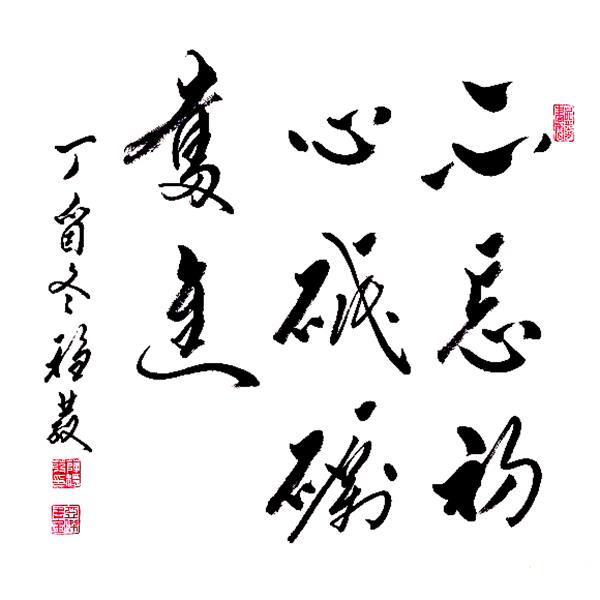 不忘初
心砥礪
奮進
丁酉冬